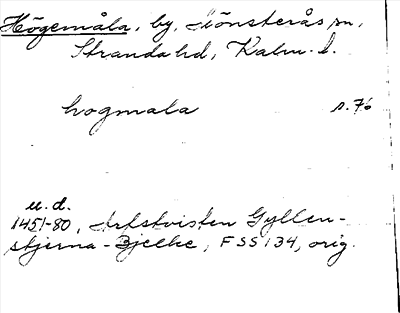 Högemåla, by, Mönsterås sn,
Stranda hd, Kalm. l.
hogmala s. 76
u. d.
1451-80, Arvstvisten Gyllen-
stjerna - Bjelke, FSS 134, orig.